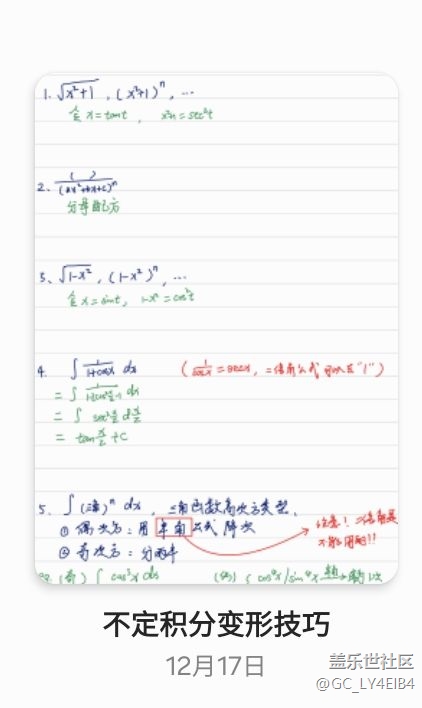 1. √x²+1 , (x²+1)ⁿ , ...
令 x=tant , x²+1=sec²t
2. ( )/(ax²+bx+c)ⁿ
分母配方
3. √1-x² , (1-x²)ⁿ , ...
令 x=sint, 1-x²=cos²t
4. ∫ 1/(1+cosx) dx (1/cosx = secx, 二倍角公式 "1")
= ∫ dx
= ∫ sec²x/2 dx/2
= tan x/2 +C
5. ∫ ( )ⁿ dx , 三角函数高次方类型.
① 偶次方: 用 半角 公式 降次
注意! 二倍角是
② 奇次方:
不能用的!!
(奇) ∫ cos³x dx (偶) ∫ cos⁴x/sin⁴x
不定积分变形技巧
12月17日
盖乐世社区
@GC_LY4EIB4